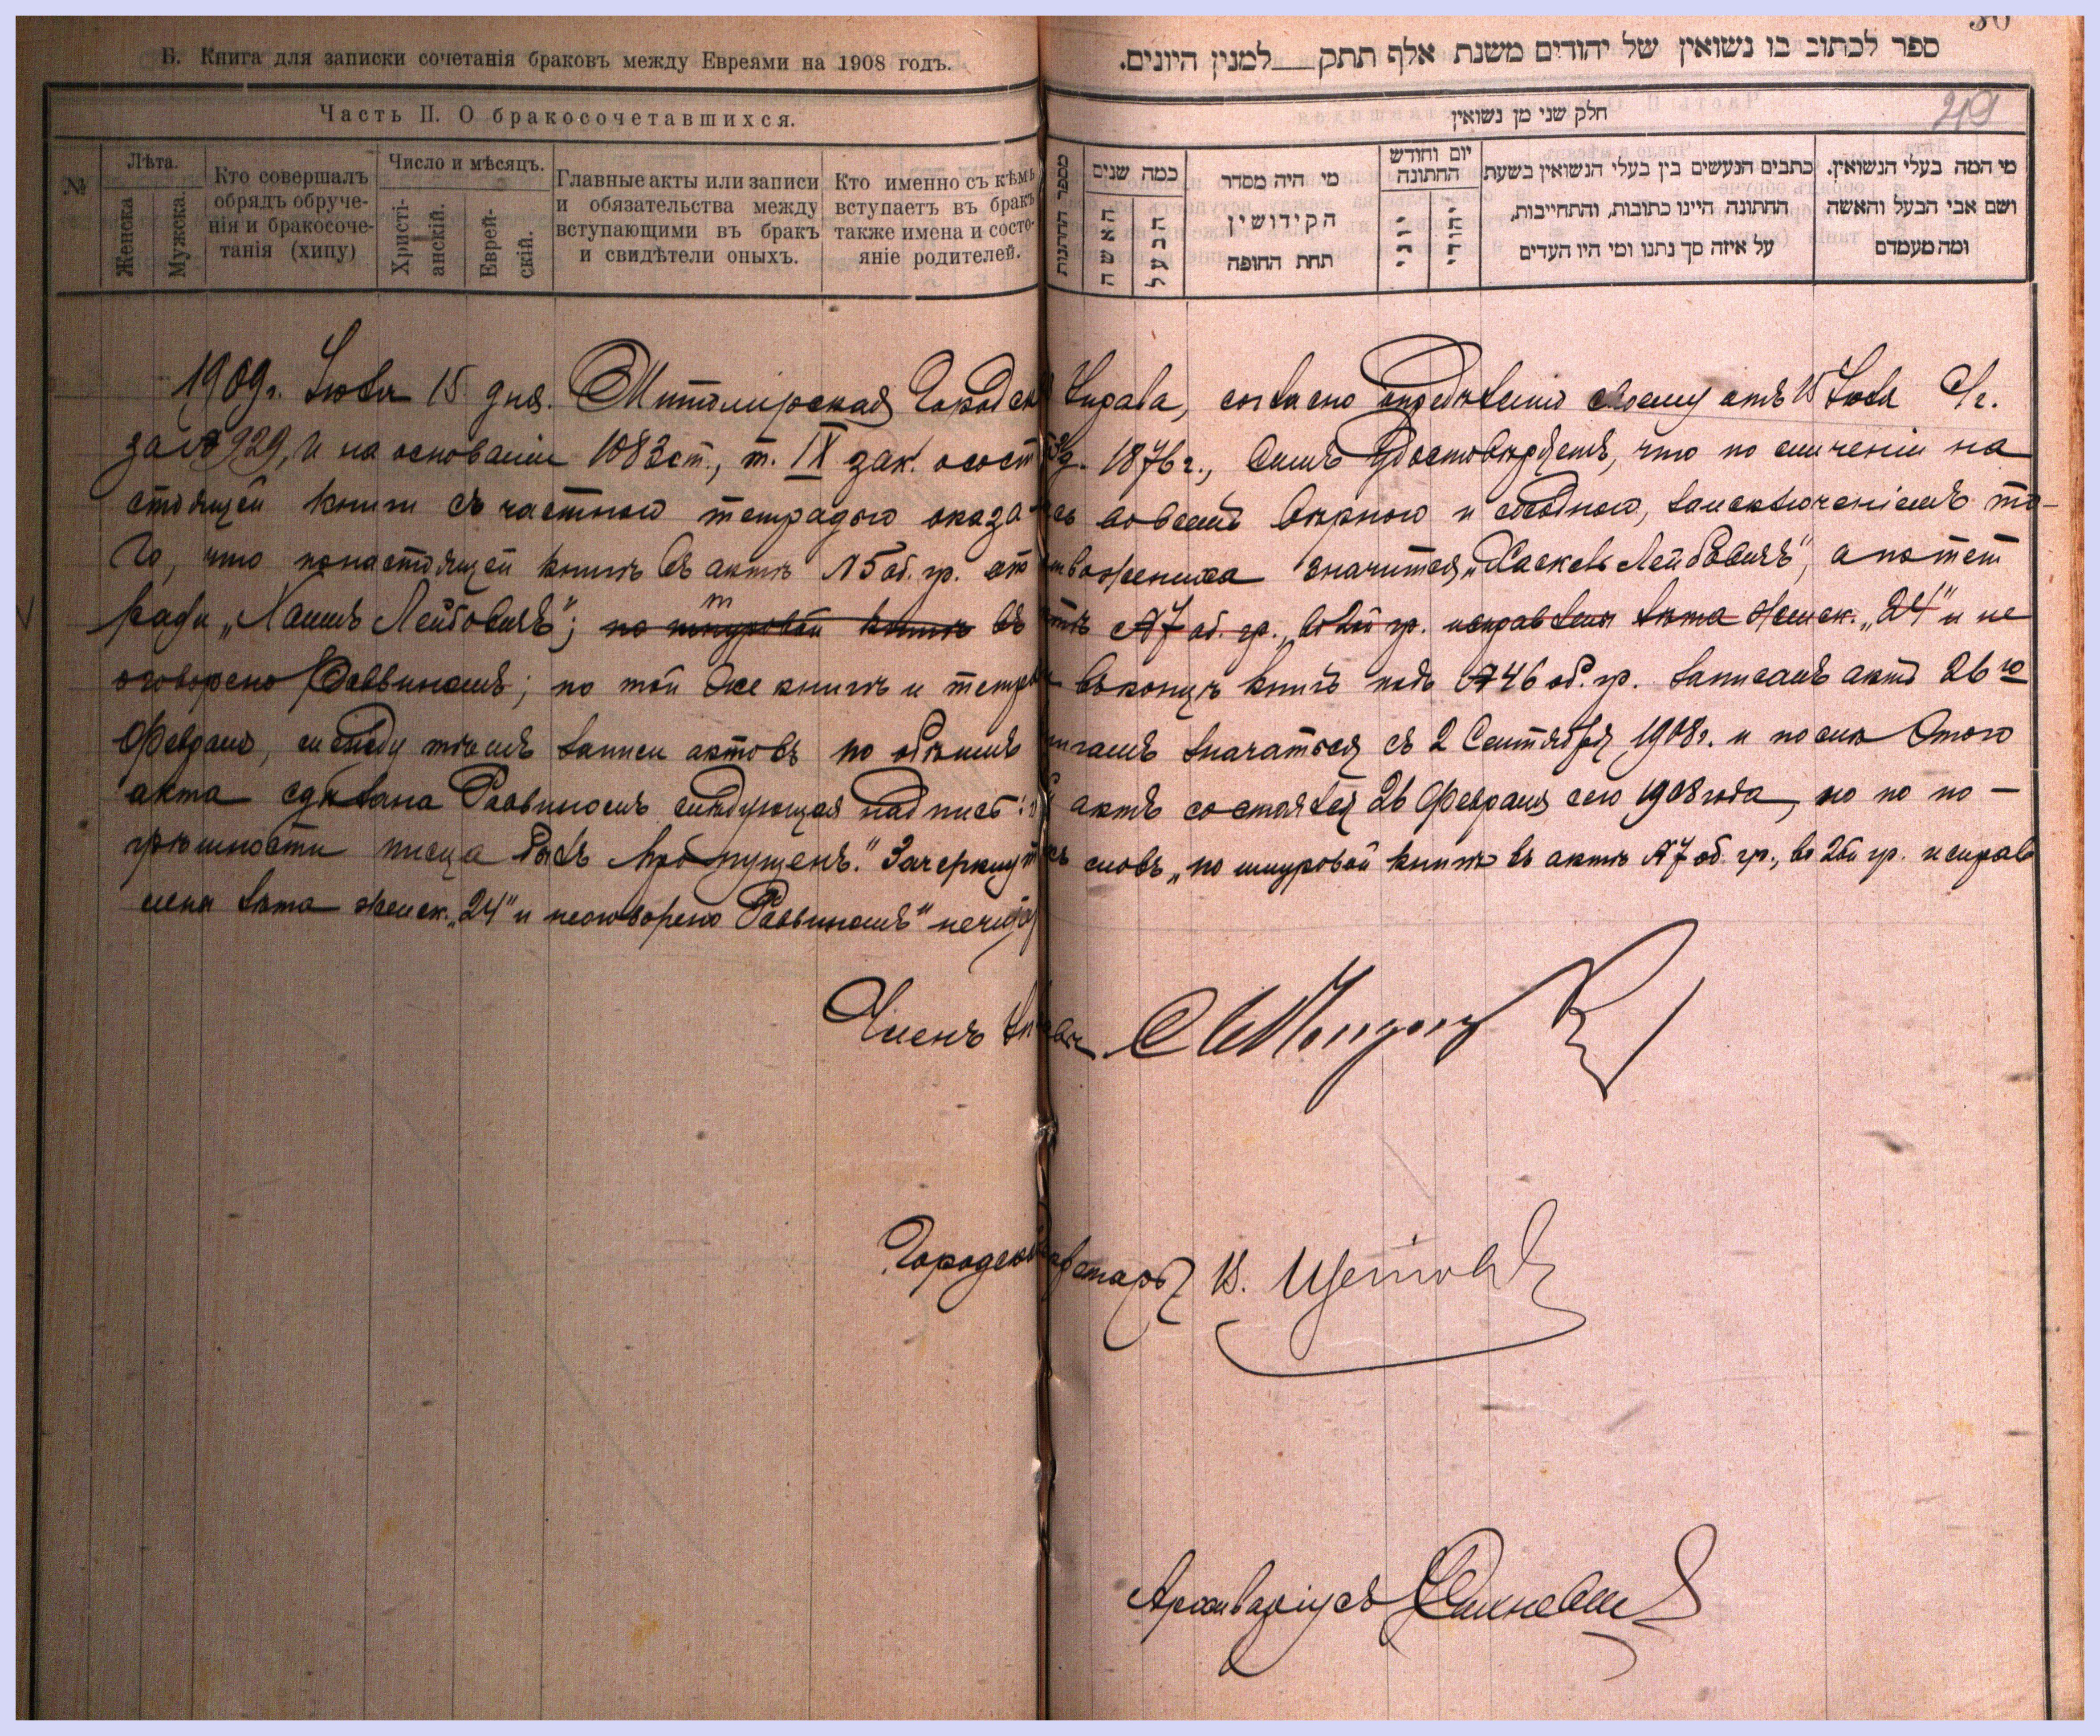 Б. Книга для записки сочетанія браковъ между Евреями на 1908 годъ.
Часть II. О бракосочетавшихся.
№
Лѣта.
Женска
Мужска.
Кто совершалъ
обрядъ обруче-
нія и бракосоче-
танія (хипу)
Число и мѣсяцъ.
Христі-
анскій.
Еврей-
скій.
Главные акты или записи
и обязательства между
вступающими въ бракъ
и свидѣтели оныхъ.
Кто именно съ кѣмъ
вступаетъ въ бракъ
также имена и состо-
яніе родителей.
30
ספר לכתוב בו נשואין של יהודים משנת אלף תתק__למנין היונים.
חלק שני מן נשואין
29
מספר החתונות
כמה שנים
האשה
הבעל
מי היה מסדר
הקידושין
תחת החופה
יום וחודש
החתונה
יוני
יהודי
כתבים הנעשים בין בעלי הנשואין בשעת
החתונה היינו כתובות, והתחייבות,
על איזה סך נתנו ומי היו העדים
מי המה בעלי הנשואין.
ושם אבי הבעל והאשה
ומה מעמדם
1909 г. Іюля 15 дня. Житомірская Городская Управа, согласно опредѣленію своему отъ 15 Іюля с/г.
за № 929, и на основаніи 1083 ст., т. IX зак. о сост. изд. 1876 г., симъ удостовѣряетъ, что по сличеніи на
стоящей книги съ частною тетрадью оказалась во всемъ вѣрною и сходною, за исключеніемъ то-
го, что по настоящей книгѣ въ актѣ №5 об. гр. отчество жениха значится „Хаскель Лейбовичъ", а по тет
ради „Хаимъ Лейбовичъ"; по шнуровой книгѣ въ актѣ №7 об. гр., во 2ой гр. исправлены лѣта женск. „24" и не
оговорено Раввиномъ; по той же книгѣ и тетради въ концѣ книгъ подъ №46 об. гр. записанъ актъ 26го
Февраля, между тѣмъ записи актовъ по обѣимъ книгамъ значатся съ 2 Сентября 1908 г. и послѣ этого
акта сдѣлана Раввиномъ слѣдующая надпись: „сей актъ состоялся 26 Февраля сего 1908 года, но по по-
грѣшности писца былъ пропущенъ." Зачеркнутыхъ словъ „по шнуровой книгѣ въ актѣ №7 об. гр., во 2ой гр. исправ
лены лѣта женск. „24" и не оговорено Раввиномъ" не читать
Членъ Управы
Городской Секретарь В.
Архиваріусъ